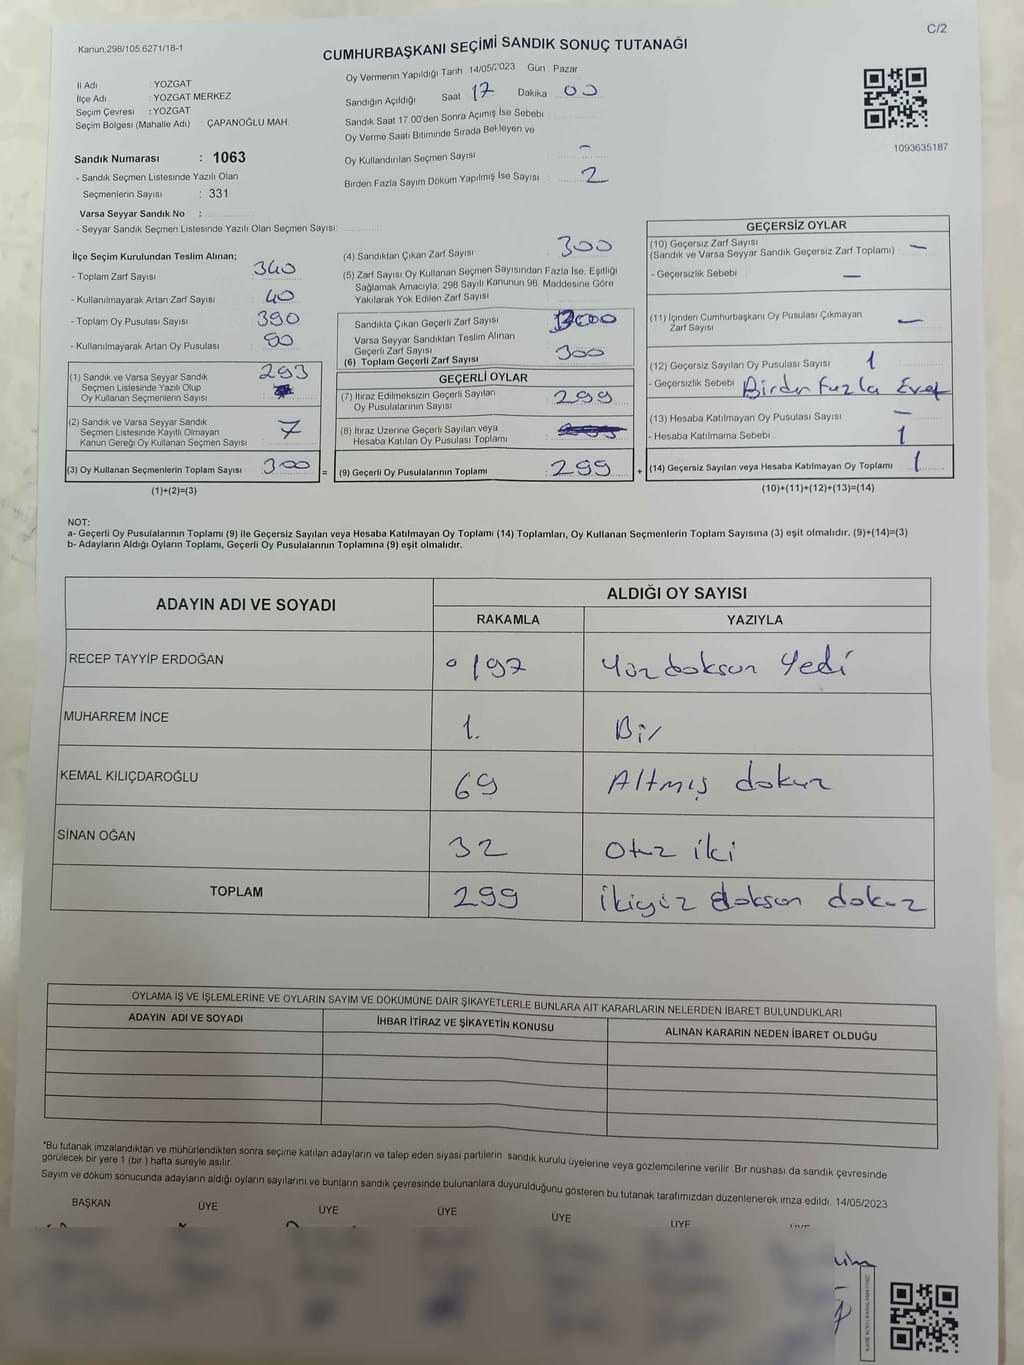 C/2
Kanun.298/105,6271/18-1
CUMHURBAŞKANI SEÇİMİ SANDIK SONUÇ TUTANAĞI
İl Adı : YOZGAT
İlçe Adı : YOZGAT MERKEZ
Seçim Çevresi : YOZGAT
Seçim Bölgesi (Mahalle Adı) : ÇAPANOĞLU MAH.
Oy Vermenin Yapıldığı Tarih : 14/05/2023 Gün : Pazar
Sandığın Açıldığı Saat 17 Dakika 00
Sandık Saat 17.00'den Sonra Açımış İse Sebebi
Oy Verme Saati Bitiminde Sırada Bekleyen ve
Oy Kullandırılan Seçmen Sayısı –
Birden Fazla Sayım Döküm Yapılmış İse Sayısı 2
1093635187
Sandık Numarası : 1063
- Sandık Seçmen Listesinde Yazılı Olan
Seçmenlerin Sayısı : 331
Varsa Seyyar Sandık No :
- Seyyar Sandık Seçmen Listesinde Yazılı Olan Seçmen Sayısı:
İlçe Seçim Kurulundan Teslim Alınan;
- Toplam Zarf Sayısı : 340
- Kullanılmayarak Artan Zarf Sayısı : 40
- Toplam Oy Pusulası Sayısı : 390
- Kullanılmayarak Artan Oy Pusulası : 90
(1) Sandık ve Varsa Seyyar Sandık 293
Seçmen Listesinde Yazılı Olup
Oy Kullanan Seçmenlerin Sayısı
(2) Sandık ve Varsa Seyyar Sandık
Seçmen Listesinde Kayıtlı Olmayan 7
Kanun Gereği Oy Kullanan Seçmen Sayısı
(3) Oy Kullanan Seçmenlerin Toplam Sayısı : 300 =
(1)+(2)=(3)
(4) Sandıktan Çıkan Zarf Sayısı : 300
(5) Zarf Sayısı Oy Kullanan Seçmen Sayısından Fazla İse, Eşitliği
Sağlamak Amacıyla, 298 Sayılı Kanunun 98. Maddesine Göre
Yakılarak Yok Edilen Zarf Sayısı
Sandıkta Çıkan Geçerli Zarf Sayısı
Varsa Seyyar Sandıktan Teslim Alınan
Geçerli Zarf Sayısı
(6) Toplam Geçerli Zarf Sayısı : 300
GEÇERLİ OYLAR
(7) İtiraz Edilmeksizin Geçerli Sayılan
Oy Pusulalarının Sayısı : 299
(8) İtiraz Üzerine Geçerli Sayılan veya
Hesaba Katılan Oy Pusulası Toplamı
(9) Geçerli Oy Pusulalarının Toplamı : 299 +
GEÇERSİZ OYLAR
(10) Geçersiz Zarf Sayısı
(Sandık ve Varsa Seyyar Sandık Geçersiz Zarf Toplamı) –
- Geçersizlik Sebebi –
(11) İçinden Cumhurbaşkanı Oy Pusulası Çıkmayan
Zarf Sayısı –
(12) Geçersiz Sayılan Oy Pusulası Sayısı : 1
- Geçersizlik Sebebi : Birden Fazla Evet
(13) Hesaba Katılmayan Oy Pusulası Sayısı : –
- Hesaba Katılmama Sebebi : 1
(14) Geçersiz Sayılan veya Hesaba Katılmayan Oy Toplamı : 1
(10)+(11)+(12)+(13)=(14)
NOT:
a- Geçerli Oy Pusulalarının Toplamı (9) ile Geçersiz Sayılan veya Hesaba Katılmayan Oy Toplamı (14) Toplamları, Oy Kullanan Seçmenlerin Toplam Sayısına (3) eşit olmalıdır. (9)+(14)=(3)
b- Adayların Aldığı Oyların Toplamı, Geçerli Oy Pusulalarının Toplamına (9) eşit olmalıdır.
ADAYIN ADI VE SOYADI
ALDIĞI OY SAYISI
RAKAMLA YAZIYLA
RECEP TAYYİP ERDOĞAN 197 Yüz doksan Yedi
MUHARREM İNCE 1. Bir
KEMAL KILIÇDAROĞLU 69 Altmış dokuz
SİNAN OĞAN 32 Otuz iki
TOPLAM 299 İkiyüz doksan dokuz
OYLAMA İŞ VE İŞLEMLERİNE VE OYLARIN SAYIM VE DÖKÜMÜNE DAİR ŞİKAYETLERLE BUNLARA AİT KARARLARIN NELERDEN İBARET BULUNDUKLARI
ADAYIN ADI VE SOYADI İHBAR İTİRAZ VE ŞİKAYETİN KONUSU ALINAN KARARIN NEDEN İBARET OLDUĞU
*Bu tutanak imzalandıktan ve mühürlendikten sonra seçime katılan adayların ve talep eden siyasi partilerin sandık kurulu üyelerine veya gözlemcilerine verilir. Bir nüshası da sandık çevresinde
görülecek bir yere 1 (bir ) hafta süreyle asılır.
Sayım ve döküm sonucunda adayların aldığı oyların sayılarını ve bunların sandık çevresinde bulunanlara duyurulduğunu gösteren bu tutanak tarafımızdan düzenlenerek imza edildi. 14/05/2023
BAŞKAN ÜYE ÜYE ÜYE ÜYE ÜYE